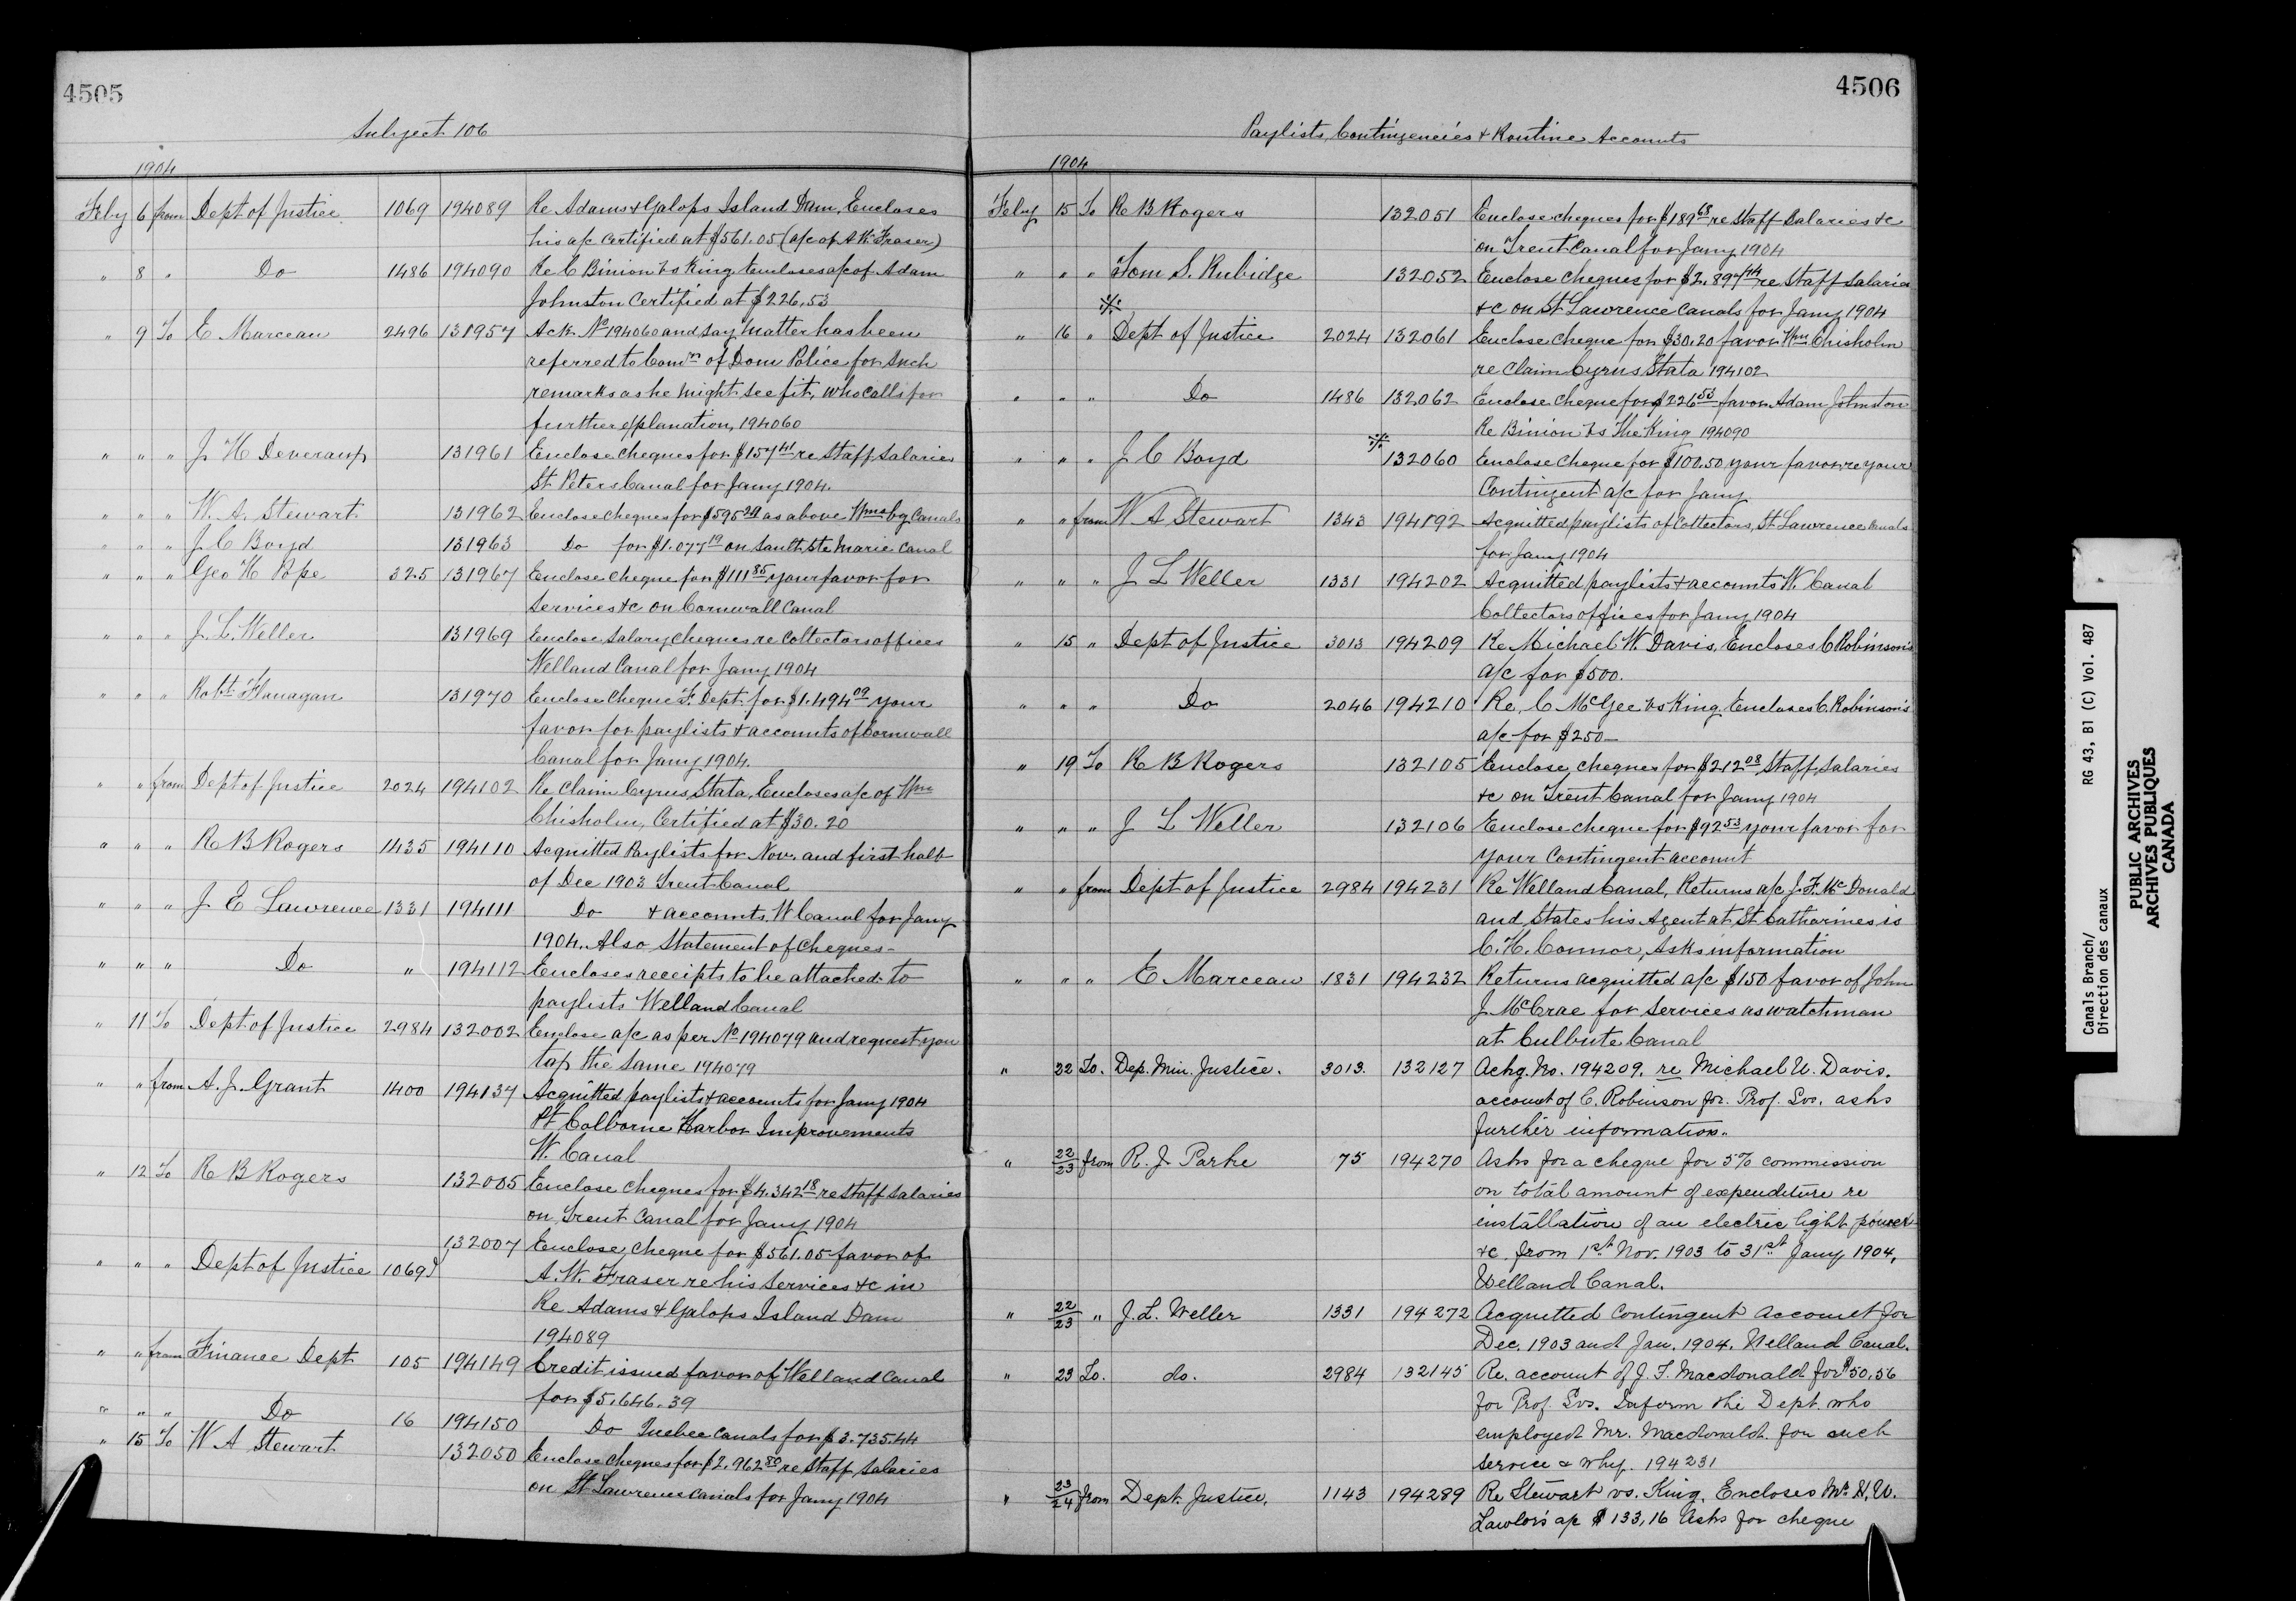 4505
Subject 106
1904
Feby 6 from Dept of Justice 1069 194089 Re Adams & Galops Island Dam, Encloses
his a/c certified at $561.05 (a/c of A.W. Fraser)
" 8 " Do 1486 194090 Re C Binion vs King Encloses a/c of Adam
Johnston Certified at $226.53
" 9 To E Marceau 2496 131957 Ack. No 194060 and say matter has been
referred to Comr of Dom Police for such
remarks as he might see fit, who calls for
further explanation, 194060
" " " J H 131961 Enclose cheques for $157 41 re Staff Salaries
St Peters Canal for Jany 1904.
" " " W. A. Stewart 131962 Enclose cheques for $595 29 as above Wmsbg Canals
" " " J C Boyd 131963 Do for $1.077 19 on Sault Ste Marie Canal
" " " Geo H Pope 325 131967 Enclose cheque for $111 85 your favor for
Services &c on Cornwall Canal
" " " J. L. Weller 131969 Enclose Salary cheques re Collectors offices
Welland Canal for Jany 1904
" " " Robt Flanagan 131970 Enclose cheque F. Dept. for $1.494 09 your
favor for paylists & accounts of Cornwall
Canal for Jany 1904.
" " from Dept of Justice 2024 194102 Re Claim Cyrus Stata, Encloses a/c of Wm
Chisholm, Certified at $30.20
" " " R B Rogers 1435 194110 Acquitted Paylists for Nov. and first half
of Dec 1903 Trent Canal
" " " J E Lawrence 1331 194111 Do & accounts, W Canal for Jany
1904. Also Statement of cheques -
" " " Do " 194112 Encloses receipts to be attached to
paylists Welland Canal
" 11 To Dept of Justice 2984 132002 Enclose a/c as per No 194079 and request you
the same 194079
" " from A. J. Grant 1400 194137 Acquitted paylists & accounts for Jany 1904
Pt Colborne Harbor Improvements
W. Canal
" 12 To R B Rogers 132005 Enclose cheques for $4.342 18 re Staff Salaries
on Trent Canal for Jany 1904
132007 Enclose cheque for $561.05 favor of
" " " Dept of Justice 1069
A. W. Fraser re his Services &c in
Re Adams & Galops Island Dam
194089
" " from Finance Dept 105 194149 Credit issued favor of Welland Canal
for $5.646.39
" " " Do 16 194150 Do Quebec Canals for $3.735.44
" 15 To W A Stewart 132050 Enclose cheques for $2.962 50 re Staff Salaries
on St Lawrence Canals for Jany 1904
4506
Paylists, Contingencies & Routine Accounts
1904
Feby 15 To R B Rogers 132051 Enclose cheques for $189 68 re Staff Salaries &c
on Trent Canal for Jany 1904
" " " Tom S. Rubidge 132052 Enclose cheques for $2.897 44 re Staff Salaries
&c on St Lawrence Canals for Jany 1904
" 16 " Dept of Justice 2024 132061 Enclose cheque for $30.20 favor Wm Chisholm
re Claim Cyrus Stata 194102
" " " Do 1486 132062 Enclose cheque for $226 53 favor Adam Johnston
Re Binion vs The King 194090
" " " J C Boyd 132060 Enclose cheque for $100.50 your favor re your
Contingent a/c for Jany
" " from W A Stewart 1343 194192 Acquitted paylists of Collectors, St Lawrence Canals
for Jany 1904
" " " J L Weller 1331 194202 Acquitted paylists & accounts W. Canal
Collectors offices for Jany 1904
" 15 " Dept of Justice 3013 194209 Re Michael W. Davis, Encloses C Robinson's
a/c for $500.
" " " Do 2046 194210 Re, C McGee vs King, Encloses C. Robinson's
a/c for $250 -
" 19 To R B Rogers 132105 Enclose cheques for $212 08 Staff Salaries
&c on Trent Canal for Jany 1904
" " " J L Weller 132106 Enclose cheque for $92 53 your favor for
your Contingent account
" " from Dept of Justice 2984 194231 Re Welland Canal, Returns a/c J. F. McDonald
and States his Agent at St Catharines is
C. H. Connor, Asks information
" " " E Marceau 1831 194232 Returns acquitted a/c $150 favor of John
J. McCrae for Services as watchman
at Culbute Canal
" 22 To. Dep. Min. Justice. 3013. 132127 Ackg. No. 194209. re Michael W. Davis.
account of C. Robinson for. Prof. Svs. asks
further information.
" 22/23 from R. J. Parke 75 194270 Asks for a cheque for 5% commission
on total amount of expenditure re
installation of an electric light power
&c. from 1st Nov. 1903 to 31st Jany 1904,
Welland Canal.
" 22/23 " J. L. Weller 1331 194272 Acquitted Contingent Account for
Dec. 1903 and Jan. 1904. Welland Canal.
" 23 To. do. 2984 132145 Re. account of J. F. Macdonald for $50.56
for Prof. Svs. Inform the Dept. who
employed Mr. Macdonald. for such
service & why. 194231
" 23/24 from Dept. Justice. 1143 194289 Re Stewart vs. King. Encloses Mr H. W.
Lawlor's a/c $133.16 Asks for cheque
Canals Branch/ RG 43, B1 (C) Vol. 487
Direction des canaux
PUBLIC ARCHIVES
ARCHIVES PUBLIQUES
CANADA